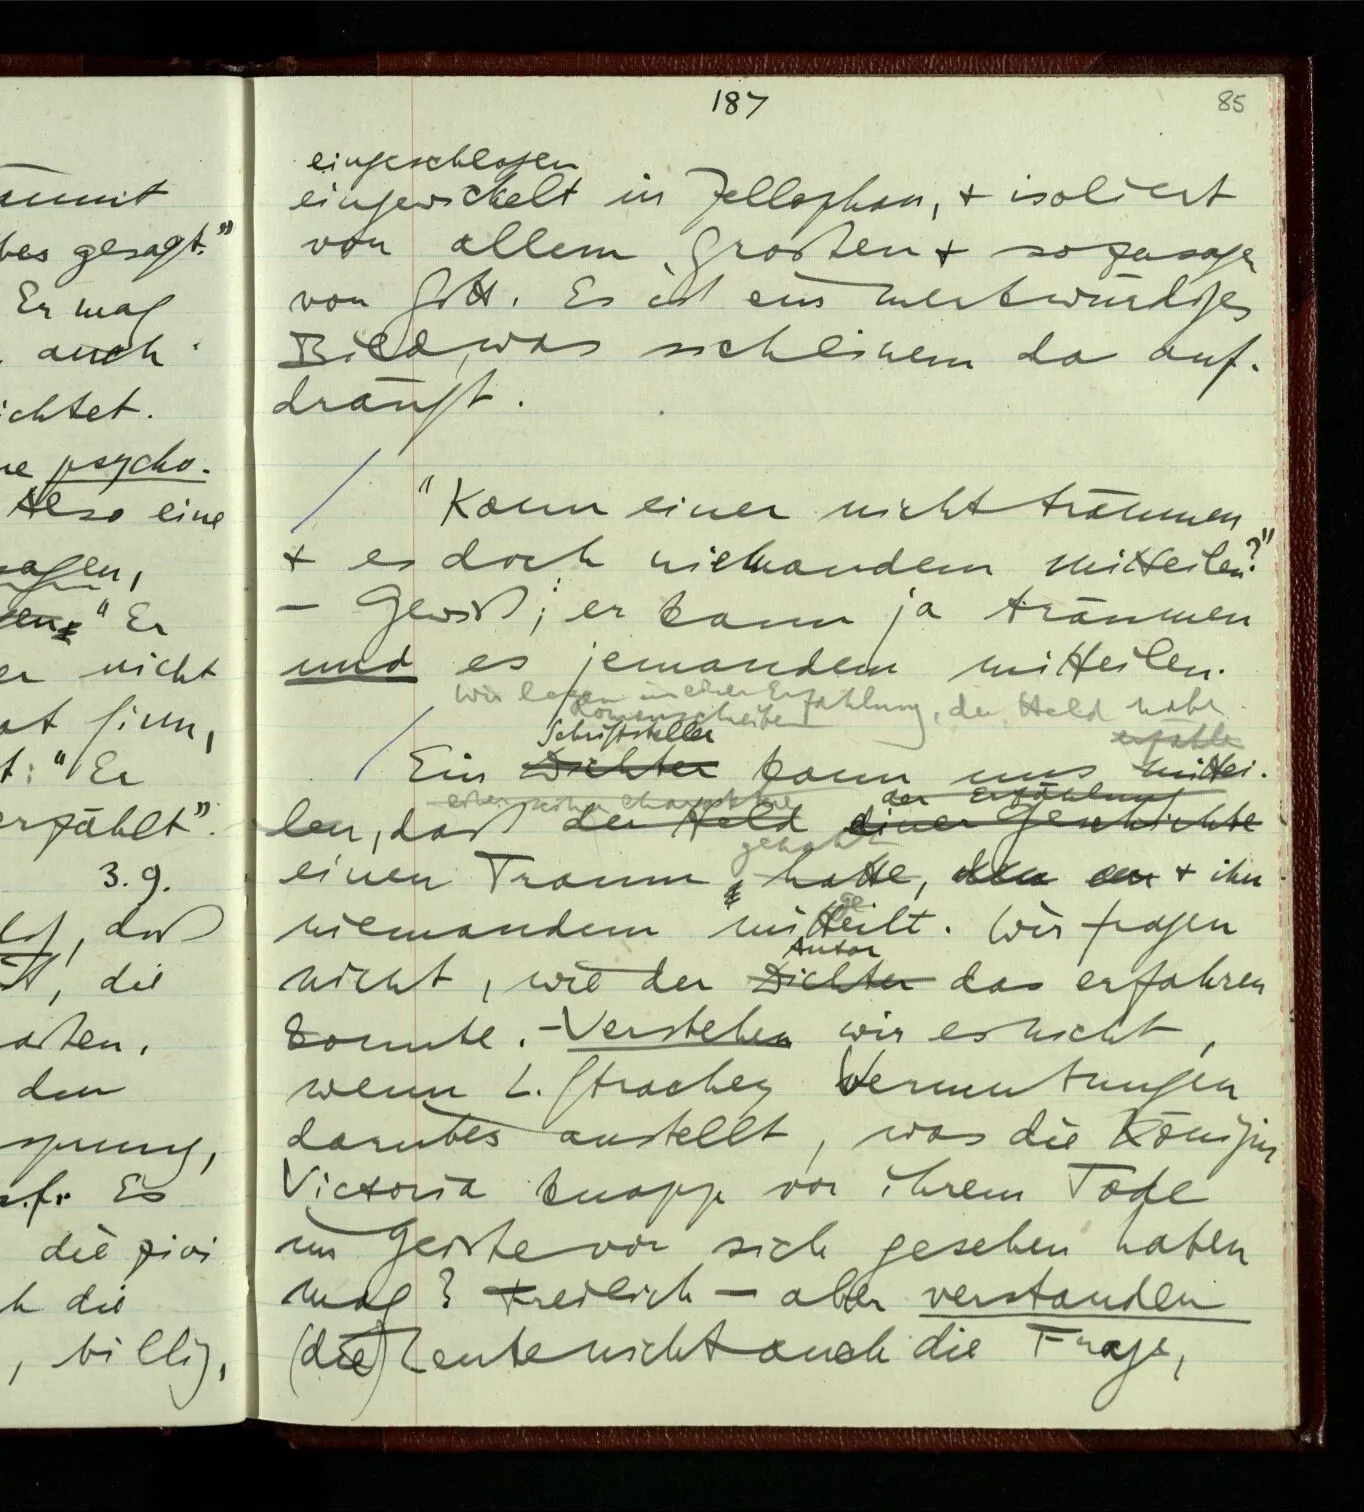 ammit
bes gesagt."
Er mag
, auch
ichtet.
ne psycho-
Also eine
sagen,
en." Er
er nicht
at Sinn,
t: "Er
erzählt".
3.9.
, daß
, die
arten.
den
sprung,
s.f. Es
die zivi
h die
, billig,
187
85
eingeschlagen
eingewickelt in Zellophan, + isoliert
von allem Großen + sozusagen
von Gott. Es ist ein merkwürdiges
Bild, was sich einem da auf-
drängt.
"Kann einer nicht träumen
+ es doch niemandem mitteilen?"
– Gewiß; er kann ja träumen
und es jemandem mitteilen.
Wir lesen in einer Erzählung, der Held habe
Romanschreiber
Schriftsteller
erzähle
Ein Dichter kann uns mittei-
einer seiner Charaktere
der Erzählung
len, daß der Held einer Geschichte
gehabt
einen Traum hatte, den er + ihn
ge
niemandem mitteilt. Wir fragen
Autor
nicht, wie der Dichter das erfahren
konnte. – Verstehen wir es nicht,
wenn L. Strachey Vermutungen
darüber anstellt, was die Königin
Victoria knapp vor ihrem Tode
im Geiste vor sich gesehen haben
mag? Freilich – aber verstanden
(die) Leute nicht auch die Frage,